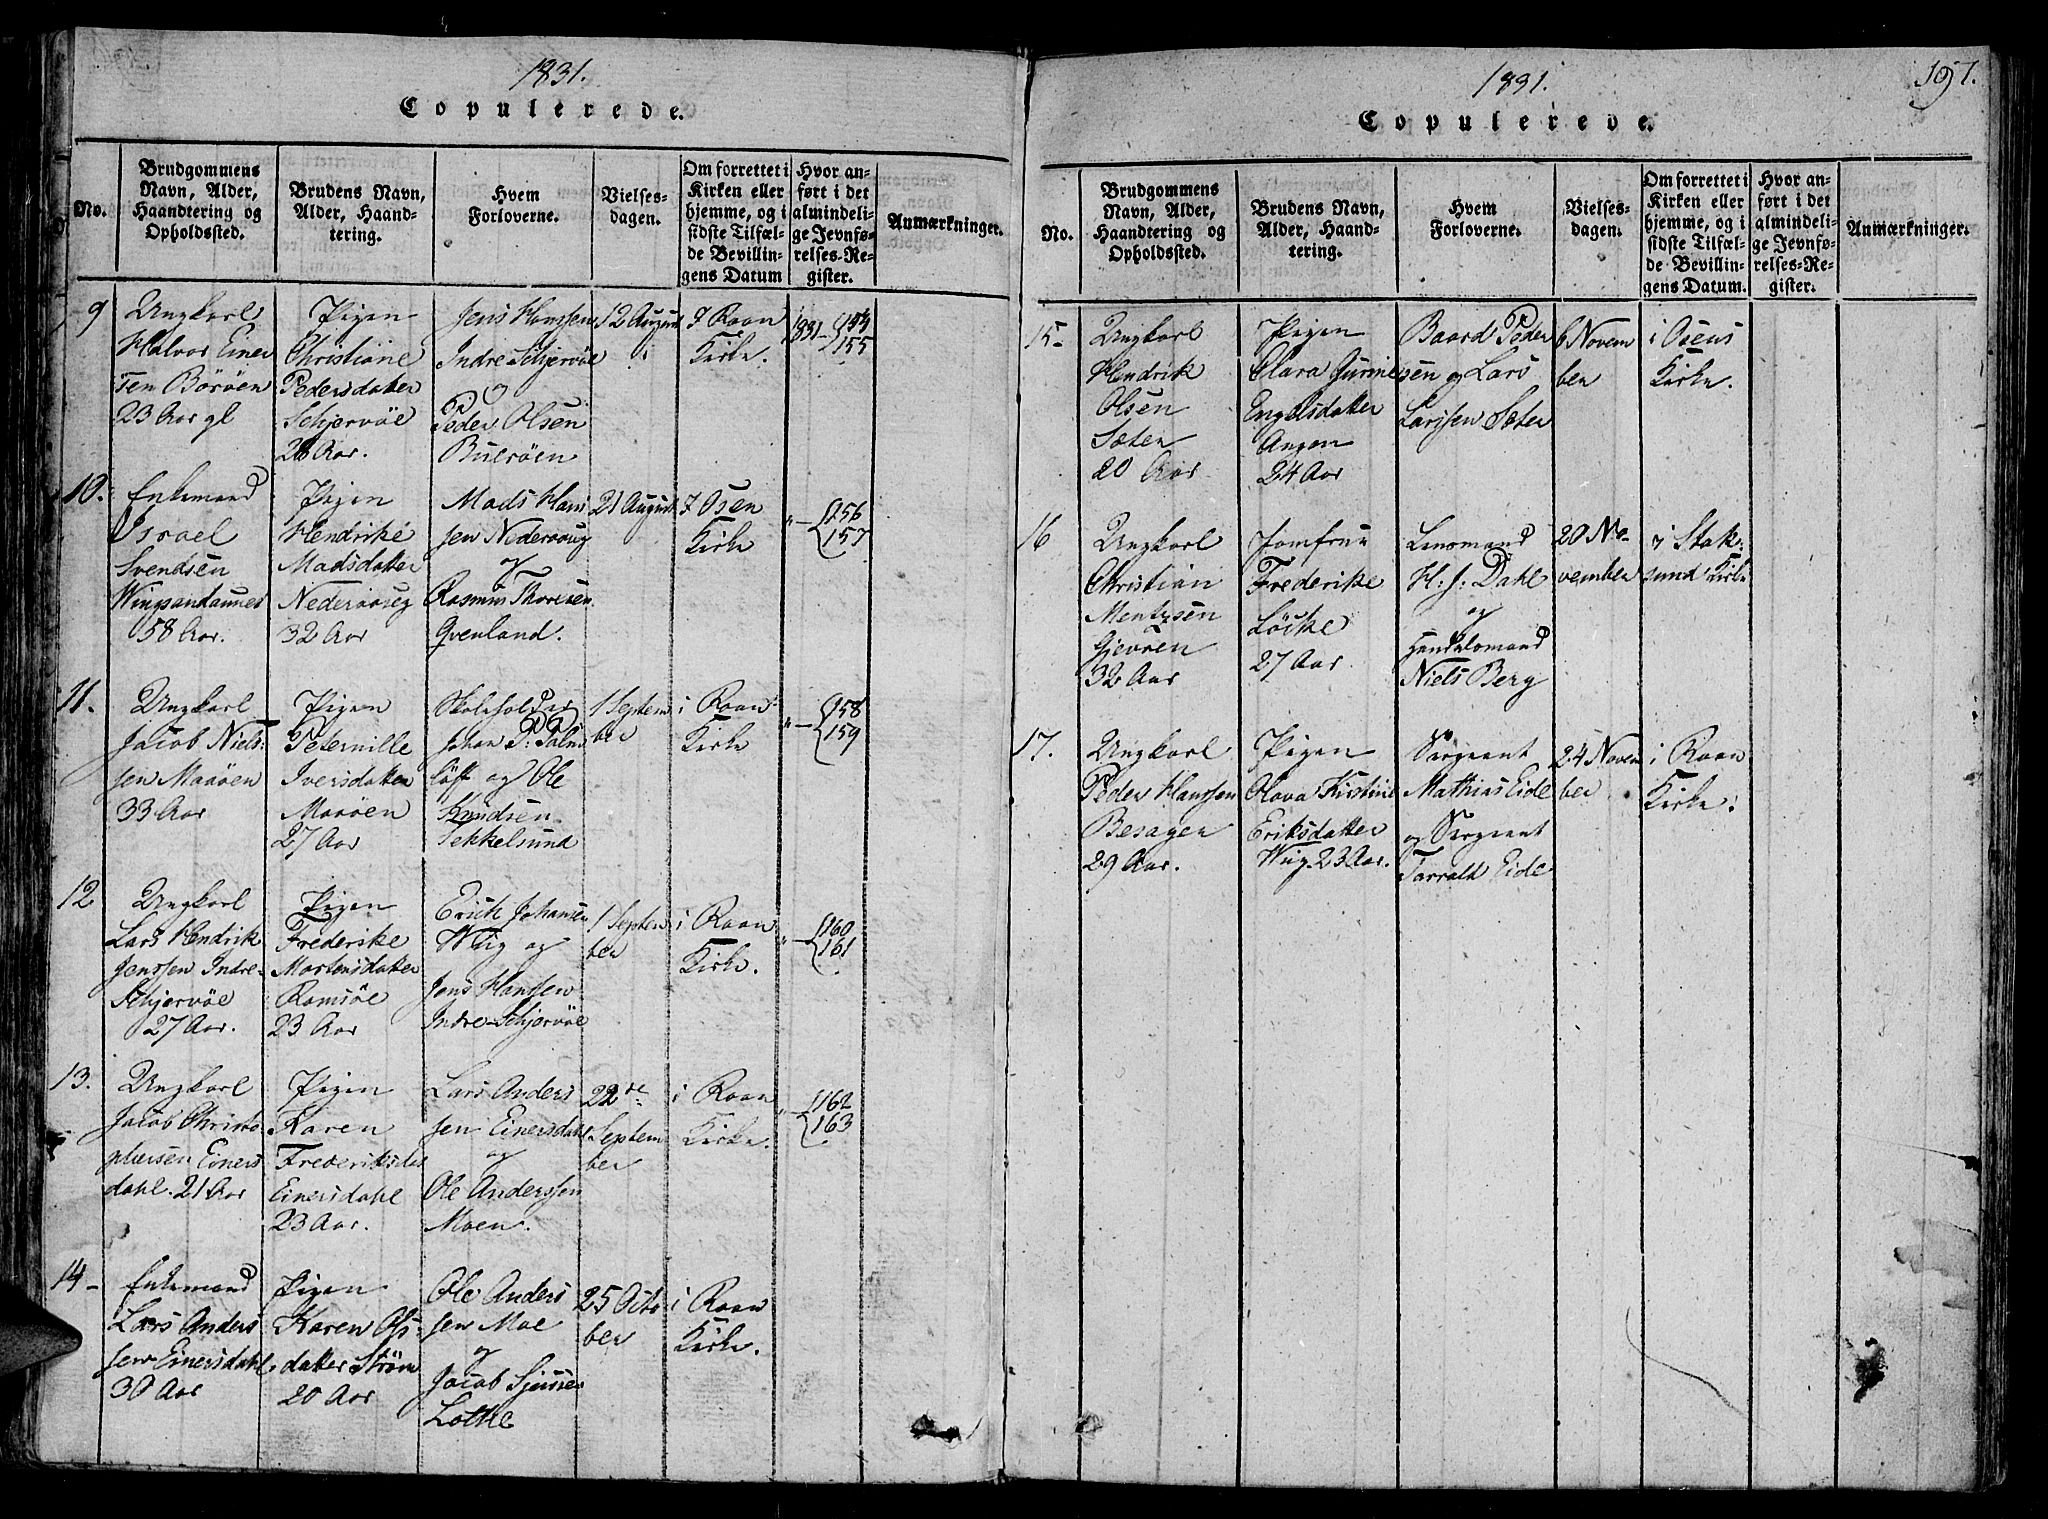 1831.
Copulerede.
No.
Brudgommens Navn, Alder, Haandtering og Opholdssted.
Brudens Navn, Alder, Haandtering.
Hvem Forloverne.
Vielsesdagen.
Om forrettet i Kirken eller hjemme, og i sidste Tilfælde Bevillingens Datum
Hvor anført i det almindelige Jevnførelses-Register.
Anmærkninger.
9
Ungkarl
Halvor Einer
ten Börøen
23 Aar gl
Pigen
Christiane
Pedersdatter
Schjervöe
26 Aar.
Jens Hanssen
Indre Schjervöe
og
Peder Olsen
Buerøen
12 August
I Roan
Kirke.
1831-
154
155
10.
Enkemand
Israel
Svendsen
Wingsandaunet
58 Aar.
Pigen
Hendrike
Madsdatter
Nedervüg
32 Aar
Mads Han
sen
og
Rasmus Thoresen
Qvenland.
21 August
I Osen
Kirke
"-
156
157
11.
Ungkarl
Jacob Niels-
sen Maröen
33 Aar
Pigen
Peternille
Iversdatter
Maröen
27 Aar
Skoleholder
Johan P: Palm
löff og Ole
Knudsen
Sekkelsund
1 Septem
ber
i Roan
Kirke
"-
158
159
12
Ungkarl
Lars Hendrik
Jenssen Indre-
Schjervöe
27 Aar.
Pigen
Frederike
Mortensdatter
Ramsöe
23 Aar
Erich Johansen
Wüg og
Jens Hanssen
Indre-Schjervöe
1 Septem
ber
i Roan
Kirke.
"-
160
161
13.
Ungkarl
Jacob Christo-
phersen Einers
dahl. 21 Aar
Pigen
Karen
Frederiksdat
Einersdahl
23 Aar.
Lars Anders
sen Einersdahl
og
Ole Anderssen
Moen.
22de
Septem
ber
i Roan
Kirke.
"-
162
163
14-
Enkemand
Lars Anders
sen Einersdahl
30 Aar
Pigen
Karen Ols-
datter Strøm
20 Aar
Ole Anders
sen Moe
og
Jacob
25 Octo
ber
i Roan
Kirke.
1831.
197.
Copulerede.
No.
Brudgommens Navn, Alder, Haandtering og Opholdssted.
Brudens Navn, Alder, Haandtering.
Hvem Forloverne.
Vielsesdagen.
Om forrettet i Kirken eller hjemme, og i sidste Tilfælde Bevillingens Datum.
Hvor anført i det almindelige Jevnførelses-Register.
Anmærkninger.
15-
Ungkarl
Hendrik
Olsen
Sæter
20 Aar
Pigen
Clara Gurine
Engelsdatter
Angen
24 Aar
Baard Peder
sen og Lars
Larssen Sæter
6 Novem
ber
i Osens
Kirke.
16
Ungkarl
Christian
Mentzsen
Gjevren
32 Aar
Jomfrue
Frederike
Löcke
27 Aar
Lensmand
H. J. Dahl
og
Handelsmand
Niels Berg
20 No-
vember
i Stok-
sund Kirke
17.
Ungkarl
Peder Hanssen
Besager
29 Aar.
Pigen
Olava Kirstine
Eriksdatter
Wüg 23 Aar.
Sergeant
Mathias Eide
og Sergeant
Tarrald Eide
24 Novem
ber
i Roan
Kirke.